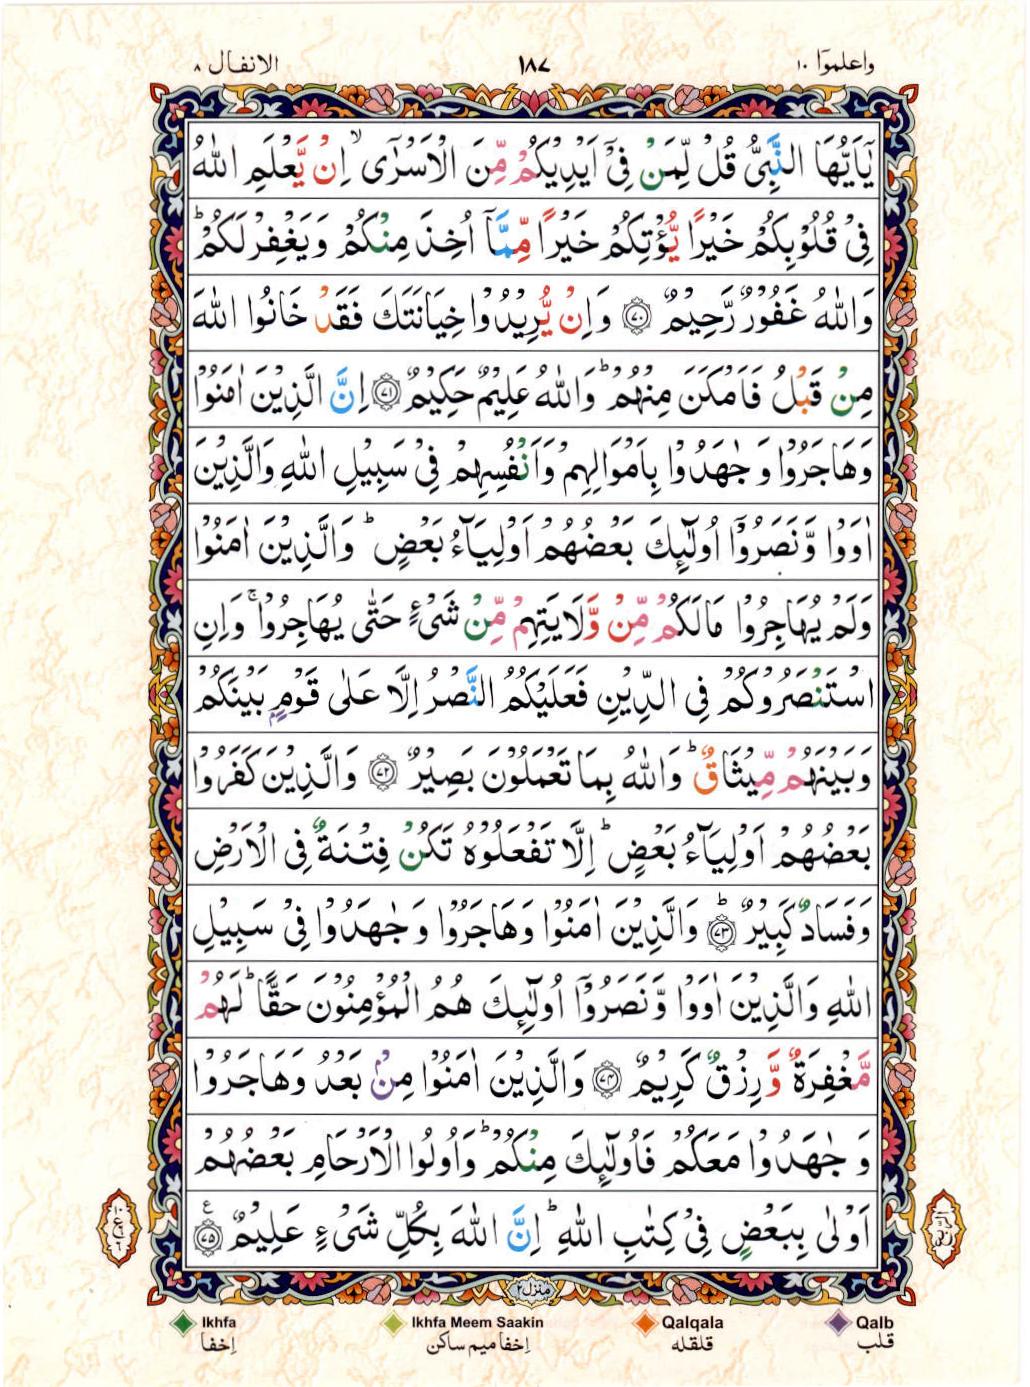 واعلموٓا ۱۰
۱۸۷
الانفال ۸
يٰۤاَيُّهَا النَّبِىُّ قُلْ لِّمَنْ فِىْۤ اَيْدِيْكُمْ مِّنَ الْاَسْرٰٓى ۙ اِنْ يَّعْلَمِ اللّٰهُ
فِىْ قُلُوْبِكُمْ خَيْرًا يُّؤْتِكُمْ خَيْرًا مِّمَّاۤ اُخِذَ مِنْكُمْ وَيَغْفِرْ لَكُمْ ؕ
وَاللّٰهُ غَفُوْرٌ رَّحِيْمٌ ﴿۷۰﴾ وَاِنْ يُّرِيْدُوْا خِيَانَتَكَ فَقَدْ خَانُوا اللّٰهَ
مِنْ قَبْلُ فَاَمْكَنَ مِنْهُمْ ؕ وَاللّٰهُ عَلِيْمٌ حَكِيْمٌ ﴿۷۱﴾ اِنَّ الَّذِيْنَ اٰمَنُوْا
وَهَاجَرُوْا وَجٰهَدُوْا بِاَمْوَالِهِمْ وَاَنْفُسِهِمْ فِىْ سَبِيْلِ اللّٰهِ وَالَّذِيْنَ
اٰوَوْا وَّنَصَرُوْۤا اُولٰٓئِكَ بَعْضُهُمْ اَوْلِيَآءُ بَعْضٍ ؕ وَالَّذِيْنَ اٰمَنُوْا
وَلَمْ يُهَاجِرُوْا مَا لَكُمْ مِّنْ وَّلَايَتِهِمْ مِّنْ شَىْءٍ حَتّٰى يُهَاجِرُوْا ۚ وَاِنِ
اسْتَنْصَرُوْكُمْ فِى الدِّيْنِ فَعَلَيْكُمُ النَّصْرُ اِلَّا عَلٰى قَوْمٍۭ بَيْنَكُمْ
وَبَيْنَهُمْ مِّيْثَاقٌ ؕ وَاللّٰهُ بِمَا تَعْمَلُوْنَ بَصِيْرٌ ﴿۷۲﴾ وَالَّذِيْنَ كَفَرُوْا
بَعْضُهُمْ اَوْلِيَآءُ بَعْضٍ ؕ اِلَّا تَفْعَلُوْهُ تَكُنْ فِتْنَةٌ فِى الْاَرْضِ
وَفَسَادٌ كَبِيْرٌ ﴿۷۳﴾ؕ وَالَّذِيْنَ اٰمَنُوْا وَهَاجَرُوْا وَجٰهَدُوْا فِىْ سَبِيْلِ
اللّٰهِ وَالَّذِيْنَ اٰوَوْا وَّنَصَرُوْۤا اُولٰٓئِكَ هُمُ الْمُؤْمِنُوْنَ حَقًّا ؕ لَهُمْ
مَّغْفِرَةٌ وَّرِزْقٌ كَرِيْمٌ ﴿۷۴﴾ وَالَّذِيْنَ اٰمَنُوْا مِنْۢ بَعْدُ وَهَاجَرُوْا
وَجٰهَدُوْا مَعَكُمْ فَاُولٰٓئِكَ مِنْكُمْ ؕ وَاُولُوا الْاَرْحَامِ بَعْضُهُمْ
اَوْلٰى بِبَعْضٍ فِىْ كِتٰبِ اللّٰهِ ؕ اِنَّ اللّٰهَ بِكُلِّ شَىْءٍ عَلِيْمٌ ﴿۷۵﴾ ع
منزل۲
Ikhfa
Ikhfa Meem Saakin
Qalqala
Qalb
اِخفا
اِخفا ميم ساكن
قلقله
قلب